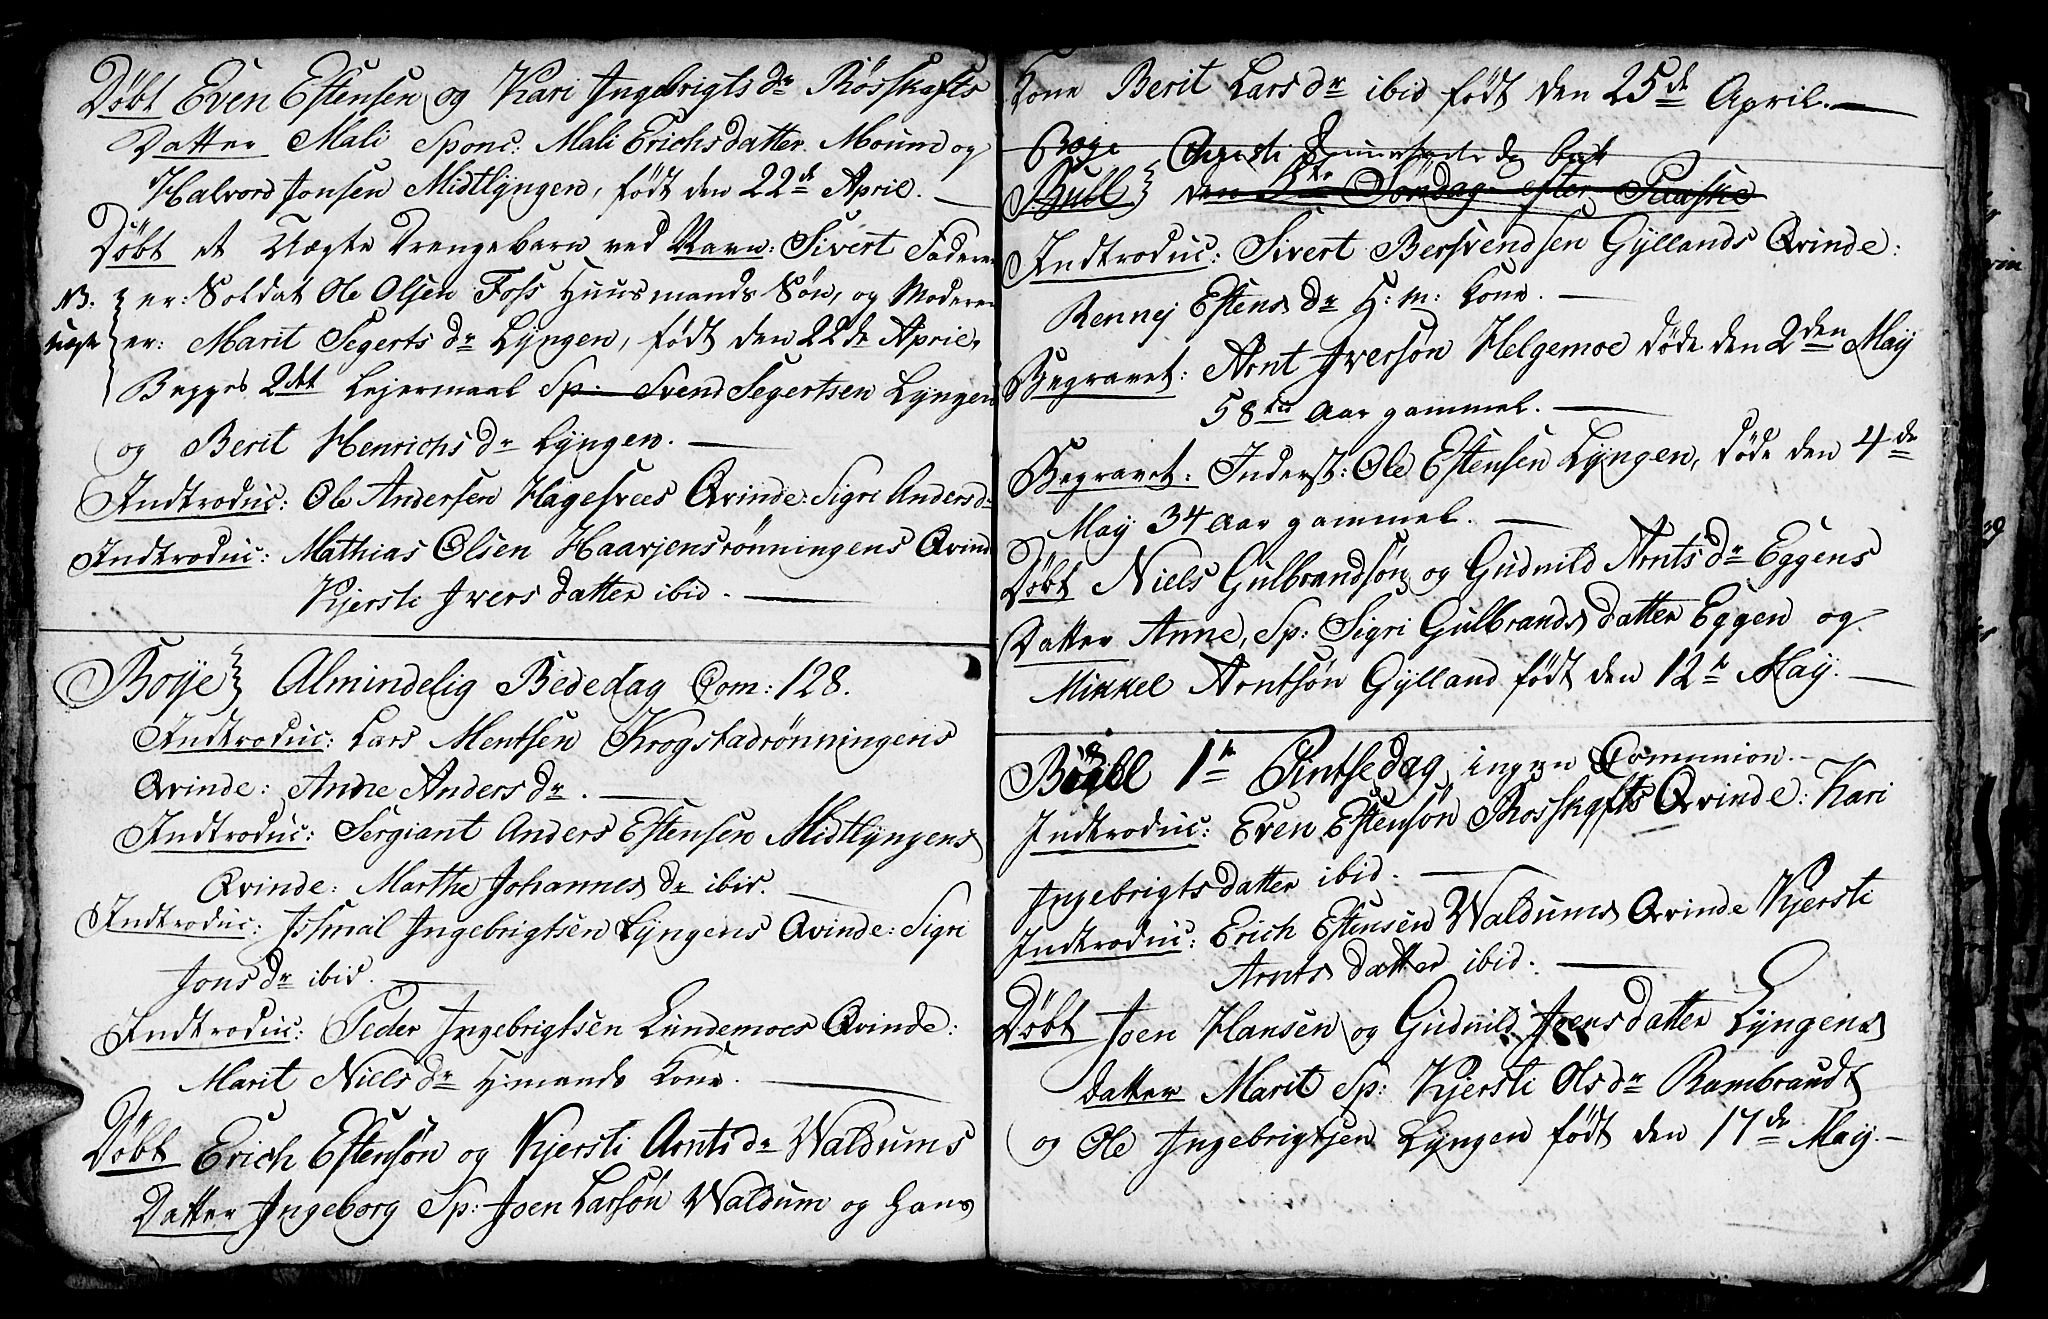 Døbt Even Estensen og Kari Ingebrigts dr Rosskafts
Datter Mali Sponc: Mali Erichsdatter Moum og
Halvord Jonsen Midtlyngen, født den 22de April.
Døbt et Uægte Drengebarn ved Navn: Sivert Faderen
NB: er: Soldat Ole Olsen Foss Huusmands Søn, og Moderen
uægte er: Marit Segerts dr Lyngen, født den 22de April,
Begges 2det Lejermaal Sp: Svend Segertsen Lyngen
og Berit Henrichs dr Lyngen.
Indtroduc: Ole Andersen Hagesvees Qvinde: Sigri Anders dr
Indtroduc: Mathias Olsen Haarjensrönningens Qvinde
Kjersti Ivers datter ibid.
Boye } Almindelig Bededag Com: 128.
Indtroduc: Lars Mentsen Krogstadrönningens
Qvinde: Anne Anders dr.
Indtroduc: Sergiant Anders Estensen Midtlyngens
Qvinde: Marthe Johannes dr ibid.
Indtroduc: Issmal Ingebrigtsen Lyngens Qvinde: Sigri
Jons dr ibid.
Indtroduc: Peder Ingebrigtsen Lundemoes Qvinde:
Marit Niels dr H:mands Kone.
Døbt Erich Estensøn og Kjersti Arnts dr Waldums
Datter Ingeborg Sp: Joen Larsøn Waldum og hans
Kone Berit Lars dr ibid født den 25de April.
Boye Christi Himmelfarts dag
Bull } den 5te Søndag efter Paaske
Indtroduc: Sivert Bersvendsen Gyllands Qvinde:
Rennej Estens dr H: m: Kone.
Begravet: Arnt Iversøn Helgemoe døde den 2den May
58 Aar gammel.
Begravet: Inderst: Ole Estensen Lyngen, døde den 4de
May 34 Aar gammel.
Døbt Niels Gulbrandsøn og Gudnild Arnts dr Eggens
Datter Anne, Sp: Sigri Gulbrands datter Eggen og
Mikkel Arntsøn Gylland født den 12te May.
Bull 1te Pintsedag ingen Comunion.
Indtroduc: Even Estensøn Rosskafts Qvinde: Kari
Ingebrigts datter ibid.
Indtroduc: Erich Estensen Waldums Qvinde Kjersti
Arnts datter ibid.
Døbt Joen Hansen og Gudnild Joens datter Lyngens
Datter Marit Sp: Kjersti Ols dr Rambraudt
og Ole Ingebrigtsen Lyngen født den 17de May.